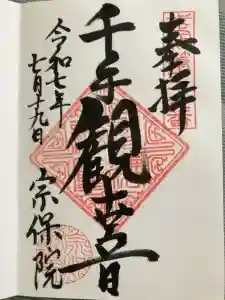 奉拝
千手観世音
令和七年
七月十九日
宗保院